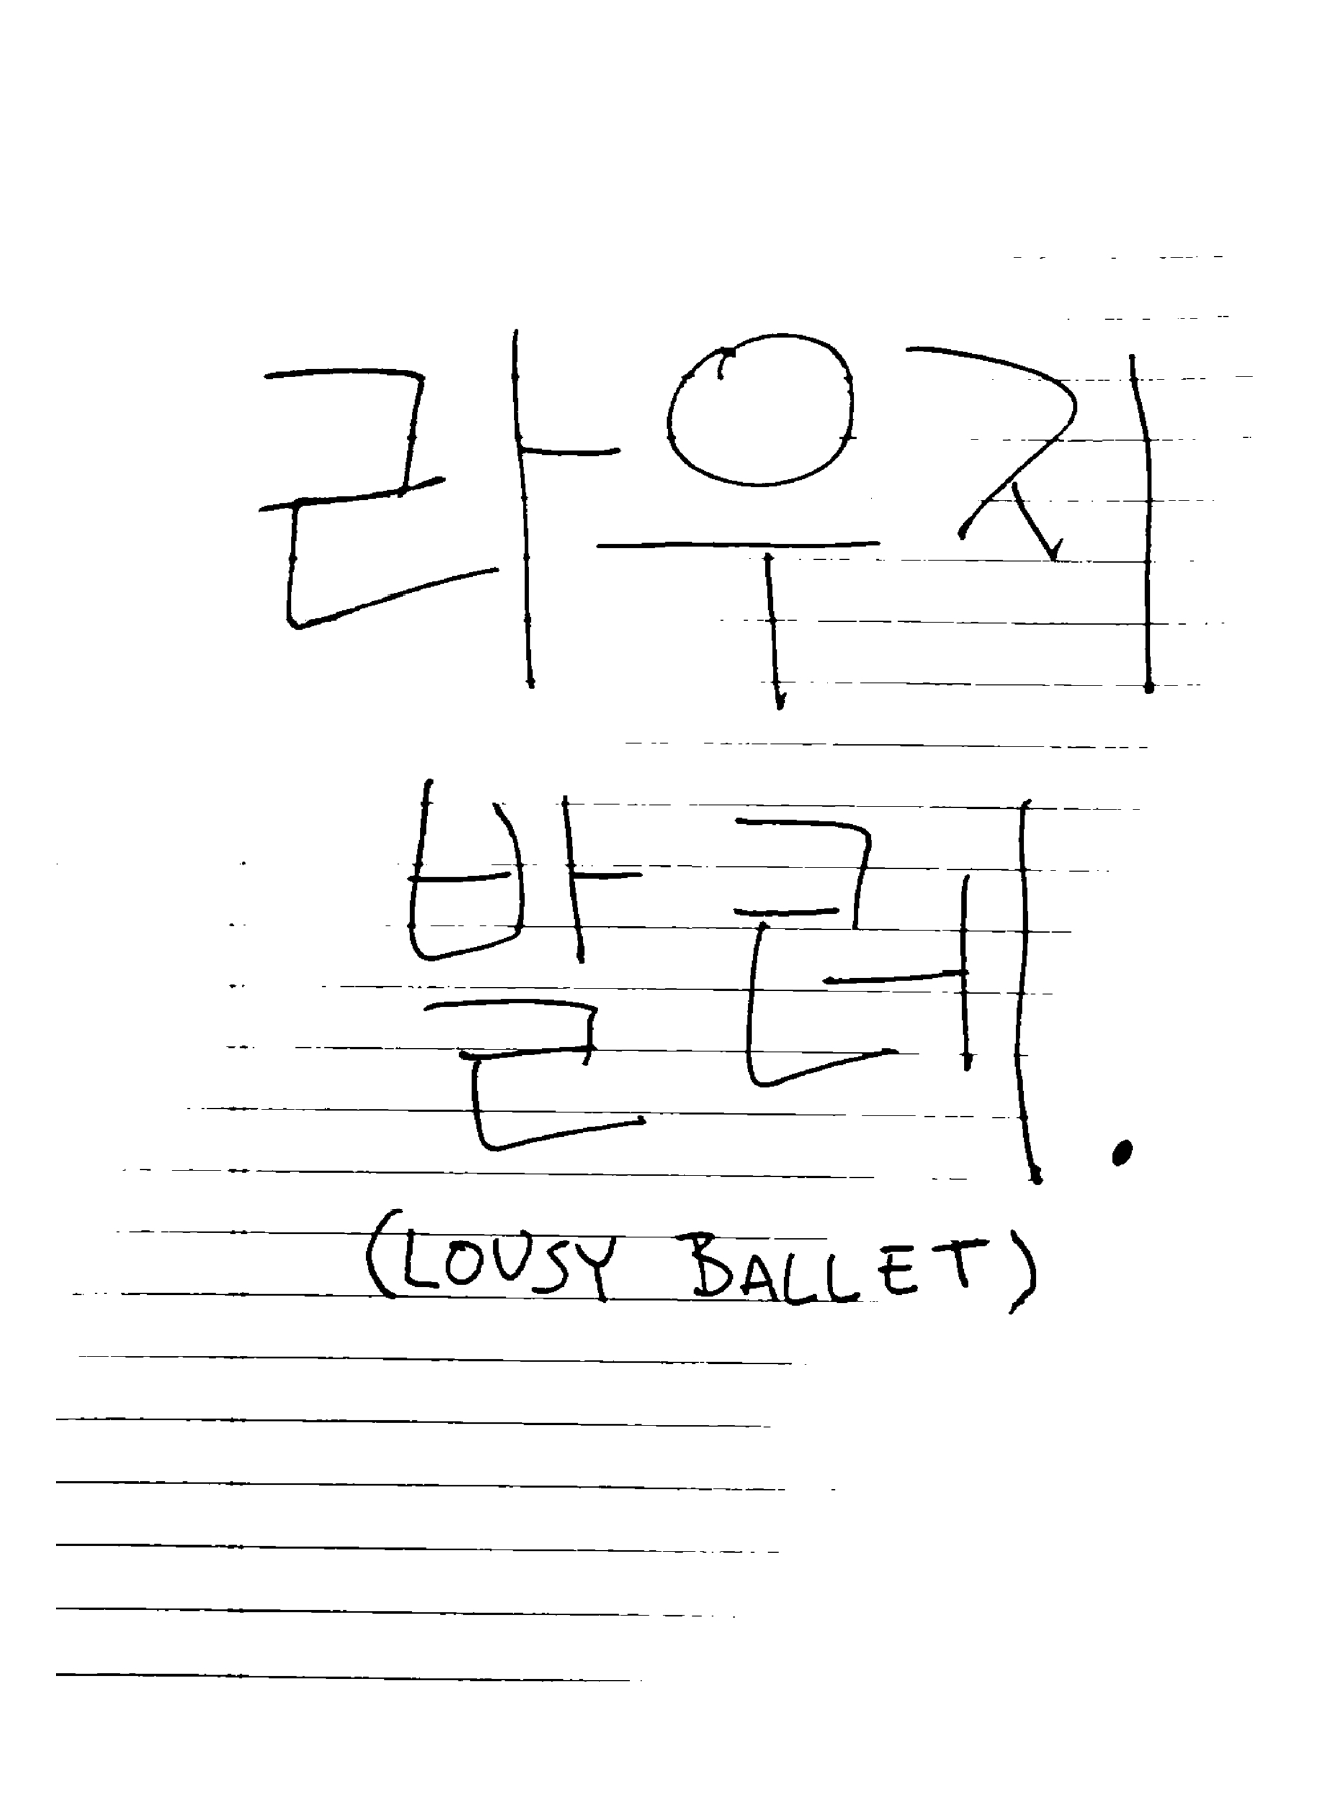 라우지
발레.
(LOUSY BALLET)